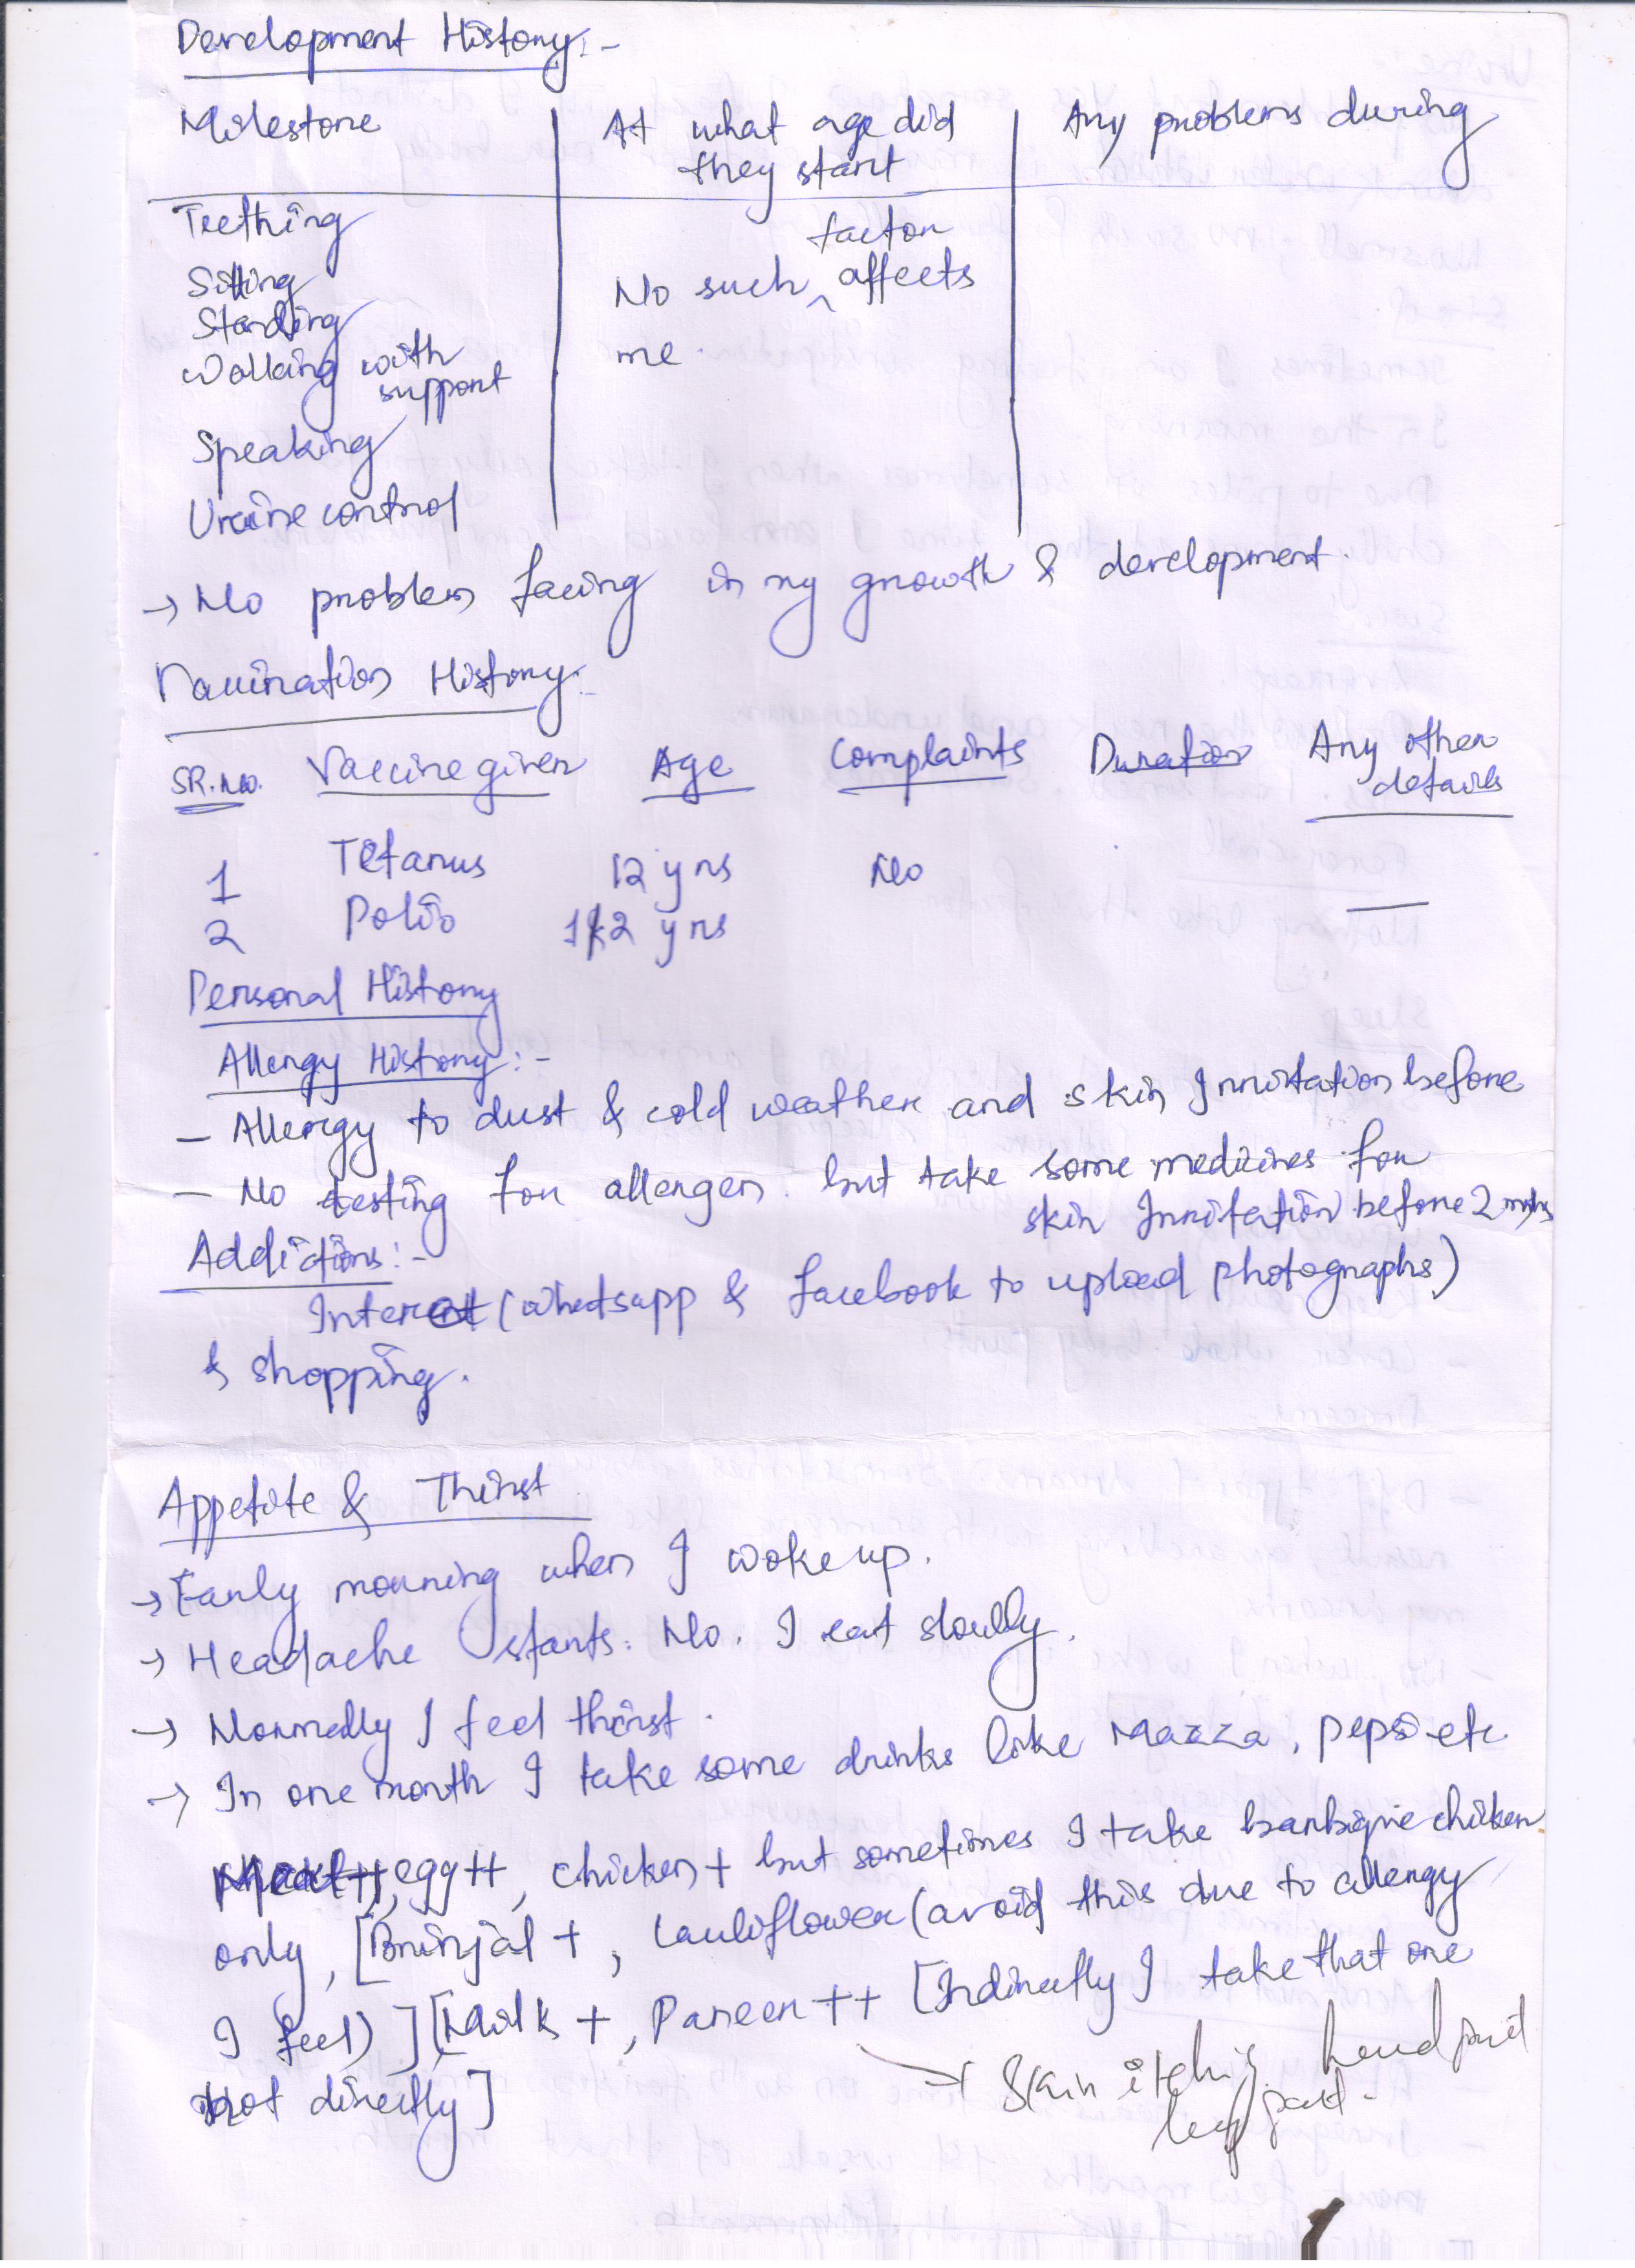 Development History:-
Milestone At what age did they start Any problems during
Teething
Sitting
Standing
Walking with support
Speaking
Uraine control
No such factor affects
me.
→ No problem facing in my growth & development.
Vaccination History:-
SR.No. Vaccine given Age Complaints Duration Any other details
1 Tetanus 12 yrs No —
2 Polio 12 yrs
Personal History
Allergy History:-
- Allergy to dust & cold weather and skin Irritation before
- No testing for allergen. but take some medicines for
skin Irritation before 2 mnths
Addictions:-
Internet (whatsapp & facebook to upload photographs)
& shopping.
Appetite & Thirst
→ Early morning when I woke up.
→ Headache starts. No. I eat slowlly.
→ Normally I feel thirst.
→ In one month I take some drinks like Mazza, pepsi etc
Meat++, egg++, chicken+ but sometimes I take barbique chicken
only, [Brinjal +, Cauliflower (avoid this due to allergy
I feel)] [Milk +, Paneer ++ [Indirectly I take that one
not directly]
→ Skin itching hand part
leg part.